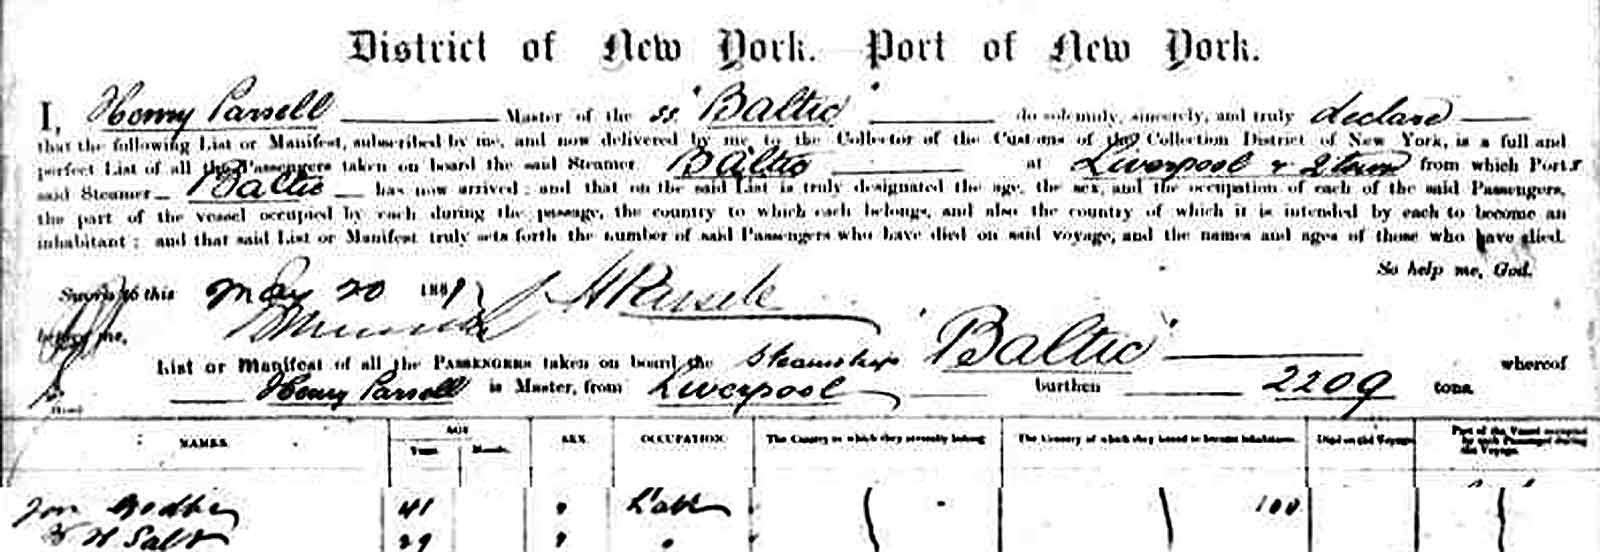 District of New York. Port of New York.
I, Henry Parsell Master of the ss "Baltic" do solemnly, sincerely, and truly declare
that the following List or Manifest, subscribed by me, and now delivered by me to the Collector of the Customs of the Collection District of New York, is a full and
perfect List of all the Passengers taken on board the said Steamer Baltic at Liverpool & Qtown from which Ports
said Steamer Baltic has now arrived; and that on the said List is truly designated the age, the sex, and the occupation of each of the said Passengers,
the part of the vessel occupied by each during the passage, the country to which each belongs, and also the country of which it is intended by each to become an
inhabitant; and that said List or Manifest truly sets forth the number of said Passengers who have died on said voyage, and the names and ages of those who have died.
So help me, God.
Sworn to this May 20 1881 H Parsell
before me,
List or Manifest of all the PASSENGERS taken on board the Steamship "Baltic" whereof
Henry Parsell is Master, from Liverpool burthen 2209 tons.
NAMES. AGE SEX. OCCUPATION. The Country to which they severally belong The Country of which they intend to become inhabitants. Died on the Voyage. Part of the Vessel occupied by each Passenger during the Voyage.
Years Months.
41 " Lab " 100
H Salt 29 " " "